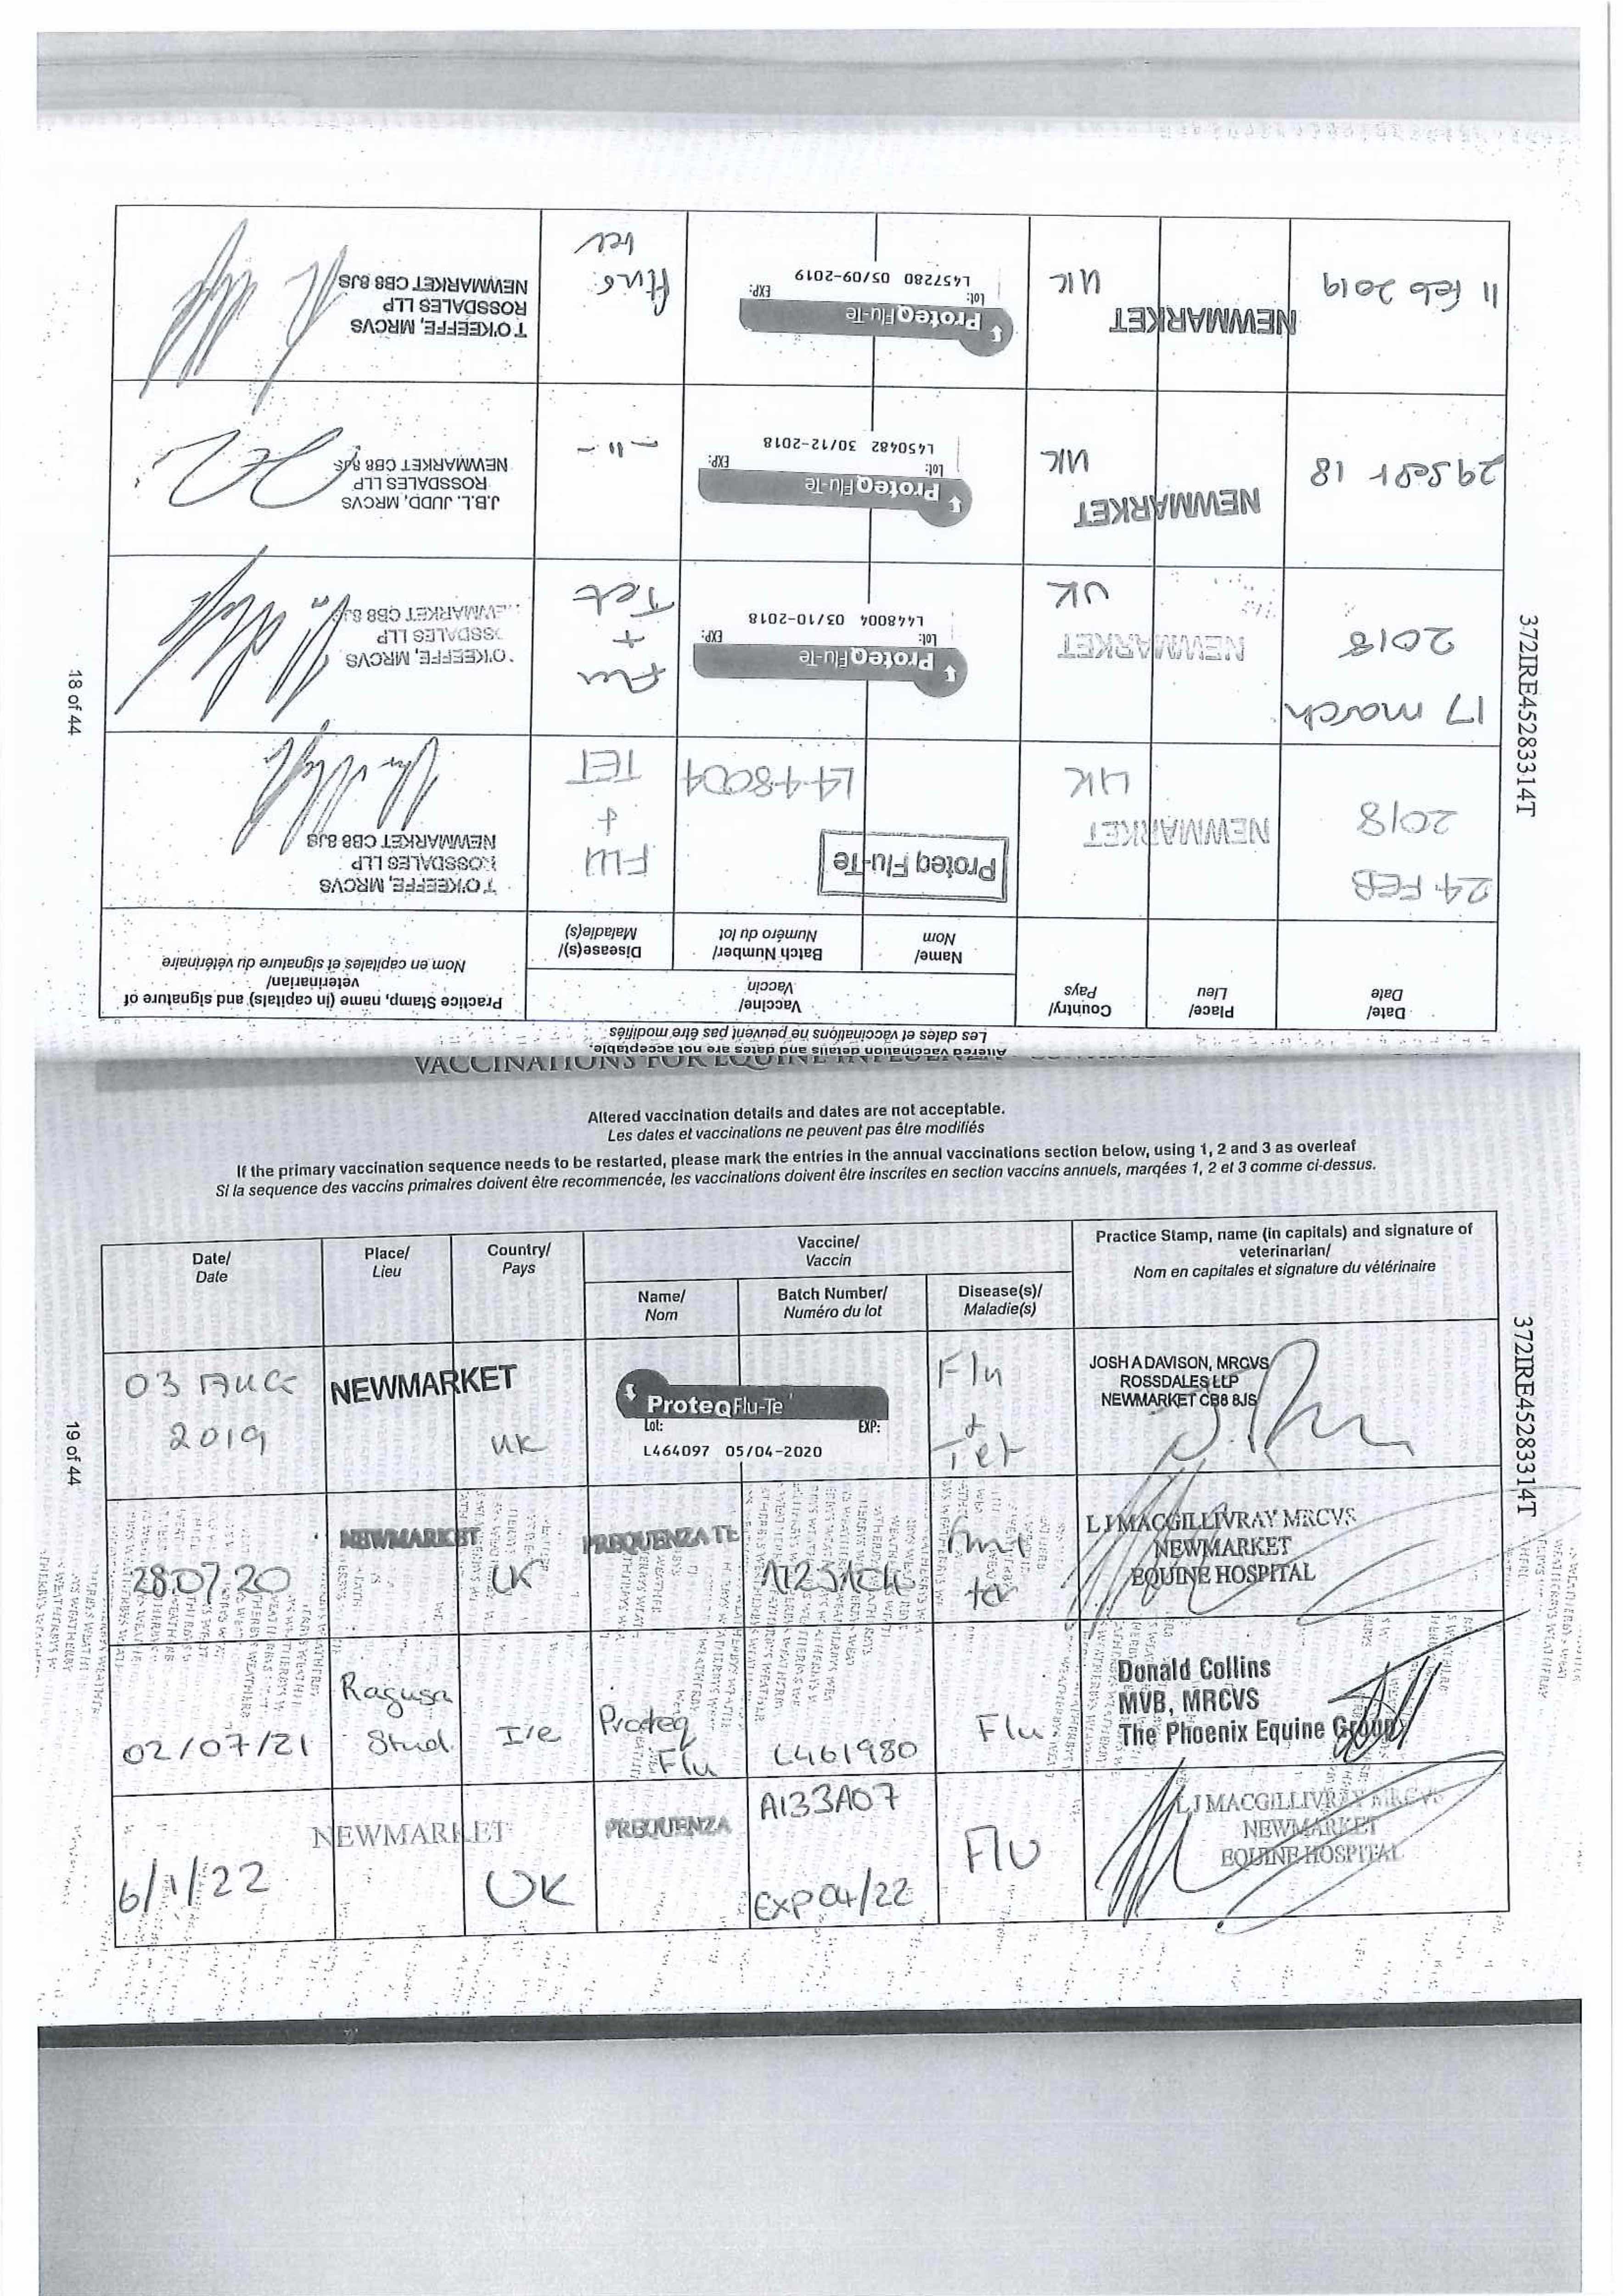 Altered vaccination details and dates are not acceptable.
Les dates et vaccinations ne peuvent pas être modifiés
Date/
Date
Place/
Lieu
Country/
Pays
Vaccine/
Vaccin
Name/
Nom
Batch Number/
Numéro du lot
Disease(s)/
Maladie(s)
Practice Stamp, name (in capitals) and signature of
veterinarian/
Nom en capitales et signature du vétérinaire
24 FEB
2018
NEWMARKET
UK
Proteq Flu-Te
L448004
FLU
+
TET
T O'KEEFFE, MRCVS
ROSSDALES LLP
NEWMARKET CB8 8JS
17 march
2018
NEWMARKET
UK
ProteqFlu-Te
Lot:
EXP:
L448004 03/10-2018
Flu
+
Tet
O'KEEFFE, MRCVS
OSSDALES LLP
EWMARKET CB8 8JS
29 Sept 18
NEWMARKET
UK
ProteqFlu-Te
Lot:
EXP:
L450482 30/12-2018
-"-
J.B.L. JUDD, MRCVS
ROSSDALES LLP
NEWMARKET CB8 8JS
11 feb 2019
NEWMARKET
UK
ProteqFlu-Te
Lot:
EXP:
L457280 05/09-2019
T O'KEEFFE, MRCVS
ROSSDALES LLP
NEWMARKET CB8 8JS
18 of 44
372IRE45283314T
Altered vaccination details and dates are not acceptable.
Les dates et vaccinations ne peuvent pas être modifiés
If the primary vaccination sequence needs to be restarted, please mark the entries in the annual vaccinations section below, using 1, 2 and 3 as overleaf
Si la sequence des vaccins primaires doivent être recommencée, les vaccinations doivent être inscrites en section vaccins annuels, marqées 1, 2 et 3 comme ci-dessus.
Date/
Date
Place/
Lieu
Country/
Pays
Vaccine/
Vaccin
Name/
Nom
Batch Number/
Numéro du lot
Disease(s)/
Maladie(s)
Practice Stamp, name (in capitals) and signature of
veterinarian/
Nom en capitales et signature du vétérinaire
03 AUG
2019
NEWMARKET
UK
ProteqFlu-Te
Lot:
EXP:
L464097 05/04-2020
Flu
+
Tet
JOSH A DAVISON, MRCVS
ROSSDALES LLP
NEWMARKET CB8 8JS
28.07.20
NEWMARKET
UK
PREQUENZA TE
tet
L J MACGILLIVRAY MRCVS
NEWMARKET
EQUINE HOSPITAL
02/07/21
Ragusa
Stud
Ire
Proteq
Flu
L461980
Flu
Donald Collins
MVB, MRCVS
The Phoenix Equine Group
6/1/22
NEWMARKET
UK
PREQUENZA
A133A07
EXP 04/22
FLU
L J MACGILLIVRAY MRCVS
NEWMARKET
EQUINE HOSPITAL
19 of 44
372IRE45283314T